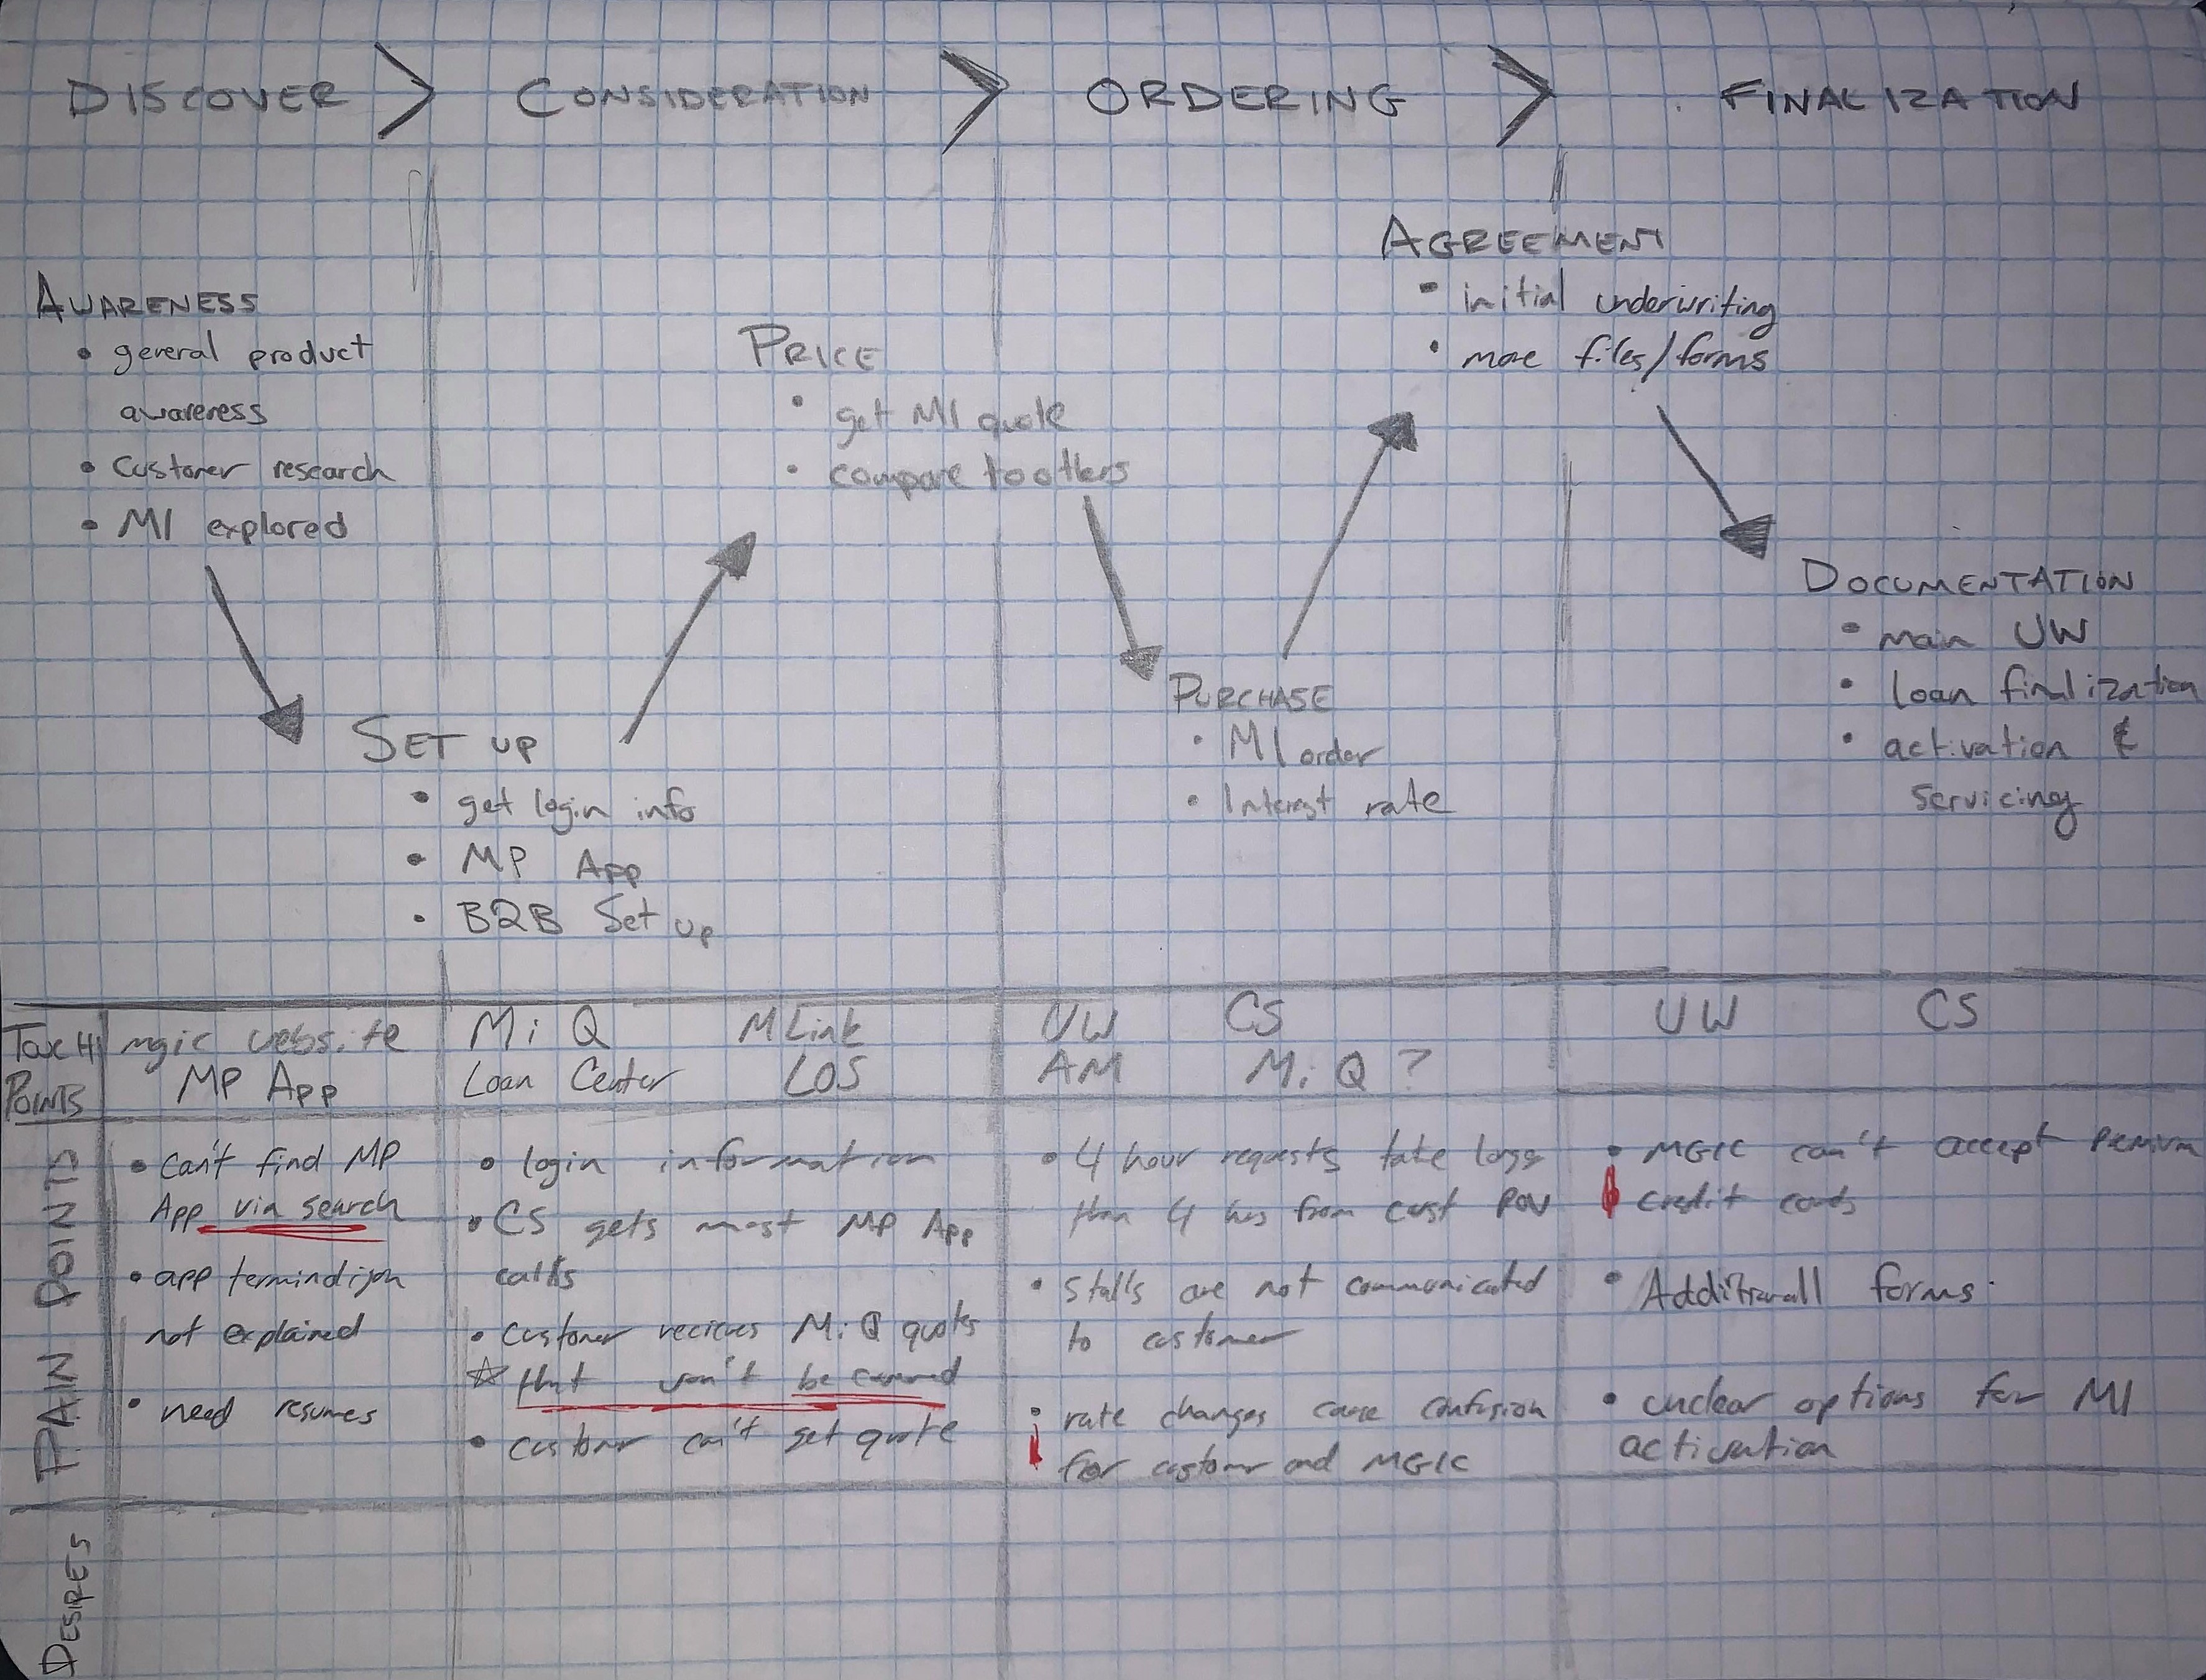 DISCOVER > CONSIDERATION > ORDERING > FINALIZATION
AWARENESS
• general product
awareness
• Customer research
• MI explored
SET UP
• get login info
• MP App
• B2B Set up
PRICE
• get MI quote
• compare to others
PURCHASE
• MI order
• Interest rate
AGREEMENT
• initial underwriting
• more files/forms
DOCUMENTATION
• main UW
• loan finalization
• activation &
servicing
TOUCH
POINTS
mgic website
MP App
MiQ MLink
Loan Center LOS
UW CS
AM MiQ?
UW CS
PAIN POINTS
• Can't find MP
App via search
• app termindijon
not explained
• need resumes
• login information
• CS gets most MP App
calls
• Customer recieves MiQ quotes
☆ that won't be
• customer can't get quote
• 4 hour requests take longer
than 4 hrs from cust POV
• Stalls are not communicated
to customer
• rate changes cause confusion
for customer and MGIC
• MGIC can't accept Premium
credit cards
• Additionall forms
• unclear options for MI
activation
DESIRES